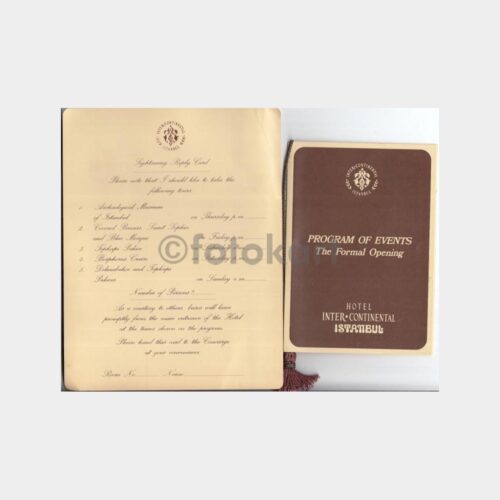 INTERCONTINENTAL
ISTANBUL
Sightseeing Reply Card
Please note that I should like to take the
following tours
1. Archeological Museum
of Istanbul on Thursday p.m.
2. Covered Bazaar, Saint Sophia
and Blue Mosque Friday p.m.
3. Topkapı Palace
4. Bosphorus Cruise
5. Dolmabahce and Topkapı
Palaces on Sunday a.m.
Number of Persons
As a courtesy to others buses will leave
promptly from the main entrance of the Hotel
at the times shown on the program.
Please hand this card to the Concierge
at your convenience.
Room No. Name
©fotokart
INTERCONTINENTAL
ISTANBUL
PROGRAM OF EVENTS
The Formal Opening
HOTEL
INTER·CONTINENTAL
ISTANBUL